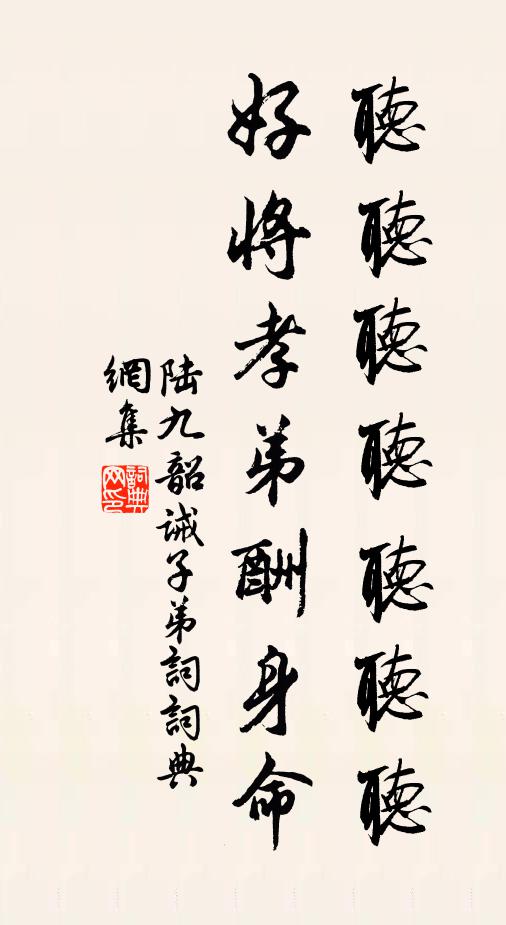 聽聽聽聽聽聽聽
好將孝弟酬身命
陆九韶诫子弟詞詞典
網集
詞典
网印